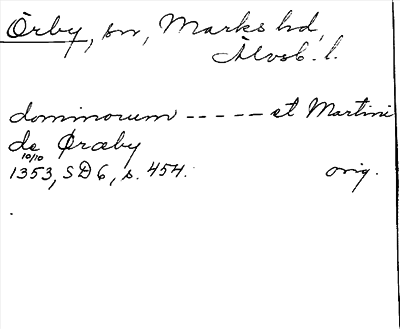 Örby, sn, Marks hd,
Älvsb. l.
dominorum ----- et Martini
de Øræby
10/10
1353, SD 6, s. 454. orig.